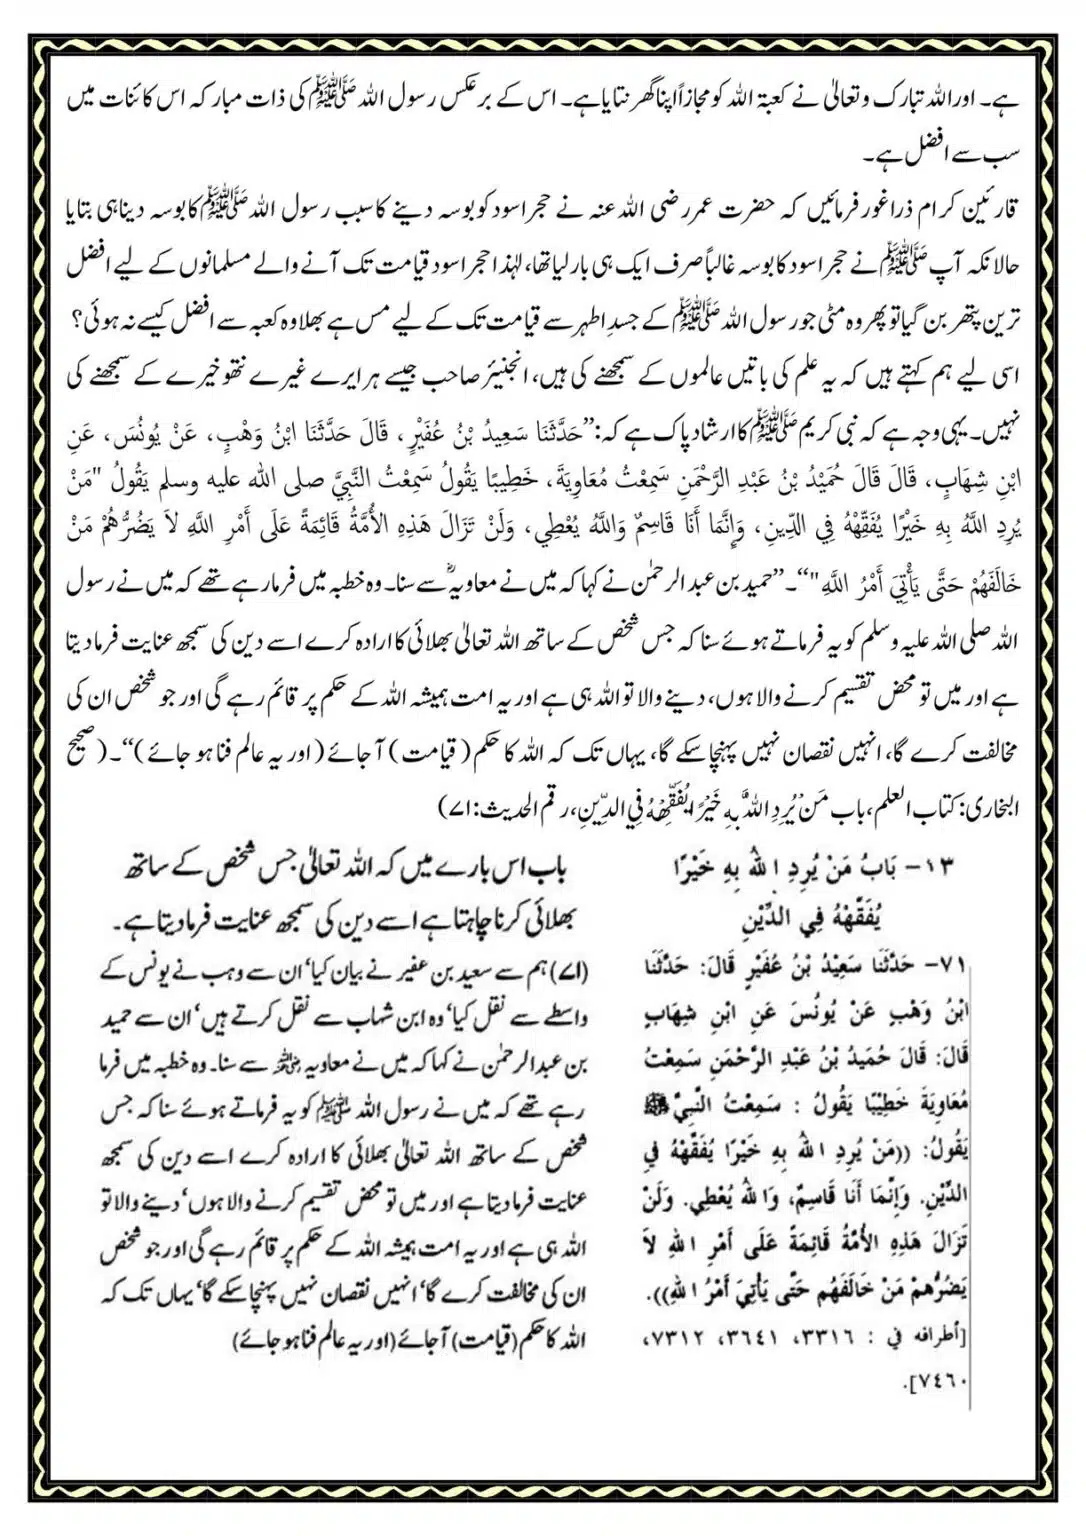 ہے۔ اوراللہ تبارک وتعالیٰ نے کعبۃ اللہ کو مجازاً اپنا گھر بتایا ہے۔ اس کے برعکس رسول اللہ ﷺ کی ذات مبارکہ اس کائنات میں
سب سے افضل ہے۔
قارئین کرام ذرا غور فرمائیں کہ حضرت عمر رضی اللہ عنہ نے حجر اسود کو بوسہ دینے کا سبب رسول اللہ ﷺ کا بوسہ دینا ہی بتایا
حالانکہ آپ ﷺ نے حجر اسود کا بوسہ غالباً صرف ایک ہی بار لیا تھا، لہٰذا حجر اسود قیامت تک آنے والے مسلمانوں کے لیے افضل
ترین پتھر بن گیا تو پھر وہ مٹی جو رسول اللہ ﷺ کے جسدِ اطہر سے قیامت تک کے لیے مس ہے بھلا وہ کعبہ سے افضل کیسے نہ ہوئی؟
اسی لیے ہم کہتے ہیں کہ یہ علم کی باتیں عالموں کے سمجھنے کی ہیں، انجنیئر صاحب جیسے ہر ایرے غیرے نتھو خیرے کے سمجھنے کی
نہیں۔ یہی وجہ ہے کہ نبی کریم ﷺ کا ارشاد پاک ہے کہ: ”حَدَّثَنَا سَعِيدُ بْنُ عُفَيْرٍ، قَالَ حَدَّثَنَا ابْنُ وَهْبٍ، عَنْ يُونُسَ، عَنِ
ابْنِ شِهَابٍ، قَالَ قَالَ حُمَيْدُ بْنُ عَبْدِ الرَّحْمَنِ سَمِعْتُ مُعَاوِيَةَ، خَطِيبًا يَقُولُ سَمِعْتُ النَّبِيَّ صلى الله عليه وسلم يَقُولُ "مَنْ
يُرِدِ اللَّهُ بِهِ خَيْرًا يُفَقِّهْهُ فِي الدِّينِ، وَإِنَّمَا أَنَا قَاسِمٌ وَاللَّهُ يُعْطِي، وَلَنْ تَزَالَ هَذِهِ الأُمَّةُ قَائِمَةً عَلَى أَمْرِ اللَّهِ لاَ يَضُرُّهُمْ مَنْ
خَالَفَهُمْ حَتَّى يَأْتِيَ أَمْرُ اللَّهِ"“۔ ”حمید بن عبد الرحمٰن نے کہا کہ میں نے معاویہؓ سے سنا۔ وہ خطبہ میں فرما رہے تھے کہ میں نے رسول
اللہ صلی اللہ علیہ وسلم کو یہ فرماتے ہوئے سنا کہ جس شخص کے ساتھ اللہ تعالیٰ بھلائی کا ارادہ کرے اسے دین کی سمجھ عنایت فرما دیتا
ہے اور میں تو محض تقسیم کرنے والا ہوں، دینے والا تو اللہ ہی ہے اور یہ امت ہمیشہ اللہ کے حکم پر قائم رہے گی اور جو شخص ان کی
مخالفت کرے گا، انہیں نقصان نہیں پہنچا سکے گا، یہاں تک کہ اللہ کا حکم (قیامت) آ جائے (اور یہ عالم فنا ہو جائے)“۔ (صحیح
البخاری: کتاب العلم، باب مَنْ يُرِدِ اللَّهُ بِهِ خَيْرًا يُفَقِّهْهُ فِي الدِّينِ، رقم الحدیث: ۷۱)
١٣- بَابُ مَنْ يُرِدِ اللهُ بِهِ خَيْرًا
يُفَقِّهْهُ فِي الدِّيْنِ
٧١- حَدَّثَنَا سَعِيْدُ بْنُ عُفَيْرٍ قَالَ: حَدَّثَنَا
ابْنُ وَهْبٍ عَنْ يُونُسَ عَنِ ابْنِ شِهَابٍ
قَالَ: قَالَ حُمَيْدُ بْنُ عَبْدِ الرَّحْمَنِ سَمِعْتُ
مُعَاوِيَةَ خَطِيْبًا يَقُولُ : سَمِعْتُ النَّبِيَّ ﷺ
يَقُولُ: ((مَنْ يُرِدِ اللهُ بِهِ خَيْرًا يُفَقِّهْهُ فِي
الدِّيْنِ. وَإِنَّمَا أَنَا قَاسِمٌ، وَاللهُ يُعْطِي. وَلَنْ
تَزَالَ هَذِهِ الأُمَّةُ قَائِمَةً عَلَى أَمْرِ اللهِ لاَ
يَضُرُّهُمْ مَنْ خَالَفَهُمْ حَتَّى يَأْتِيَ أَمْرُ اللهِ)).
[أطرافه في : ٣٣١٦، ٣٦٤١، ٧٣١٢،
٧٤٦٠].
باب اس بارے میں کہ اللہ تعالیٰ جس شخص کے ساتھ
بھلائی کرنا چاہتا ہے اسے دین کی سمجھ عنایت فرما دیتا ہے۔
(۷۱) ہم سے سعید بن عفیر نے بیان کیا‘ ان سے وہب نے یونس کے
واسطے سے نقل کیا‘ وہ ابن شہاب سے نقل کرتے ہیں‘ ان سے حمید
بن عبدالرحمٰن نے کہا کہ میں نے معاویہ رضی اللہ عنہ سے سنا۔ وہ خطبہ میں فرما
رہے تھے کہ میں نے رسول اللہ ﷺ کو یہ فرماتے ہوئے سنا کہ جس
شخص کے ساتھ اللہ تعالیٰ بھلائی کا ارادہ کرے اسے دین کی سمجھ
عنایت فرما دیتا ہے اور میں تو محض تقسیم کرنے والا ہوں‘ دینے والا تو
اللہ ہی ہے اور یہ امت ہمیشہ اللہ کے حکم پر قائم رہے گی اور جو شخص
ان کی مخالفت کرے گا‘ انہیں نقصان نہیں پہنچا سکے گا‘ یہاں تک کہ
اللہ کا حکم (قیامت) آجائے (اور یہ عالم فنا ہو جائے)